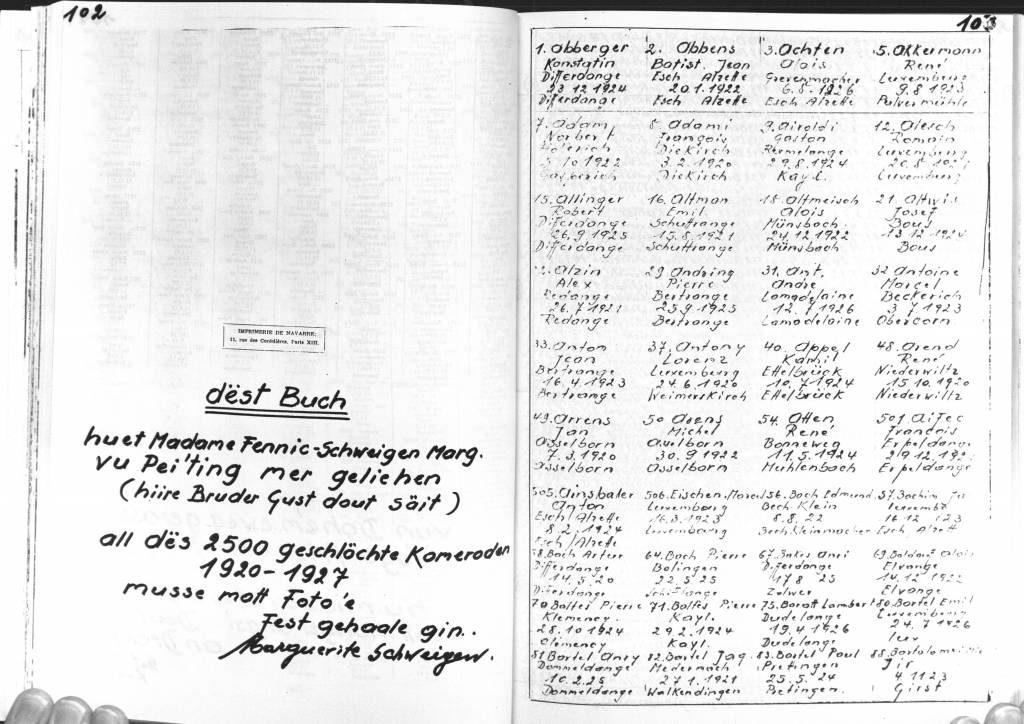 102
IMPRIMERIE DE NAVARRE
11, rue des Cordelières, Paris XIII.
dëst Buch
huet Madame Fennic-Schweigen Marg.
vu Pei'ting mer geliehen
(hiire Bruder Gust dout säit)
all dës 2500 geschlöchte Komeroden
1920-1927
musse matt Foto'e
Fest gehaale gin..
Marguerite Schweigen.
103
1. Abberger 2. Abbens 3. Achten 5. Akkermann
Konstatin Batist. Jean Alois René
Differdange Esch Alzette Grevenmacher Luxemburg
23 12 1924 20.1.1922 6.8.1926 9.8 1923
Differdange Esch Alzette Esch Alzette Pulvermühle
7. Adam 8. Adami 9. Airoldi 12. Alesch
Norbert François Gaston Romain
Holerich Diekirch Rumelange Luxemburg
10 1922 3.2.1920 29.8.1924 20.8
Gasperich Diekirch Kayl. Luxemburg
15. Allinger 16. Altman 18. Altmeisch 21. Altwis
Robert Emil Alois Josef
Differdange Schuttrange Münsbach. Bous
26.9.1925 15.8.1921 24.12 1922 12 1924
Differdange Schuttrange Münsbach Bous
Alzin 29 Andring 31. Ant. 32 Antoine
Alex Pierre André Marcel
Redange Bertrange Lamadelaine Beckerich
26.7 1921 25.9.1925 12.7 1926 3.7 1923
Redange Bertrange Lamadelaine Obercorn
33. Anton 37. Antony 40. Appel 48. Arend
Jean Lorenz Kamil René
Bertrange Luxemburg Ettelbrück Niederwiltz
16.4.1923 24.6.1920 10.7 1924 15 10.1920
Bertrange Weimerskirch Ettelbrück Niederwiltz
49. Arrens 50 Arens 54. Atten 501 Aitec
Jan Michel René Francois
Asselborn Asselborn Bonneweg Erpeldange
7.3.1920 30.9 1922 11.5 1924 29 12
Asselborn Asselborn Mühlenbach Erpeldange
505. Ainsbaler 506. Eischen, Marcel 56. Bach Edmund 57. Bachim
Anton Luxemburg Bech-Klein
Esch/Alzette 16.3.1923 8.8.22 16 12
8.2.1924 Luxembourg Bech Kleinmacher Esch Alzett
Esch/Alzette
58. Bach Artur 64. Bach Pierre 67. Bakes Anri 69. Baldorf Alois
Differdange Bolingen Diferdange Elvange
14.5.20 22.5.25 17 8 25 14.12 1922
Diferdange Schifflange Zolwer Elvange
70 Balfes Pierre 71. Balfes Pierre 75. Baratt Lambert 80. Bartel Emil
Klemency. Kayl. Dudelange Luxemburg
28.10 1924 29.2.1924 19.4 1926 24.7 1926
Clemency Kayl. Dudelange Lux
81 Bartel Anry 82. Bartel Jaq. 83. Bartel Paul 88. Bartolome
Dommeldange Medernach Prettingen Jir
10.2.25 27.1 1921 25.5.24 4.11 23
Dommeldange Walkendingen Girst